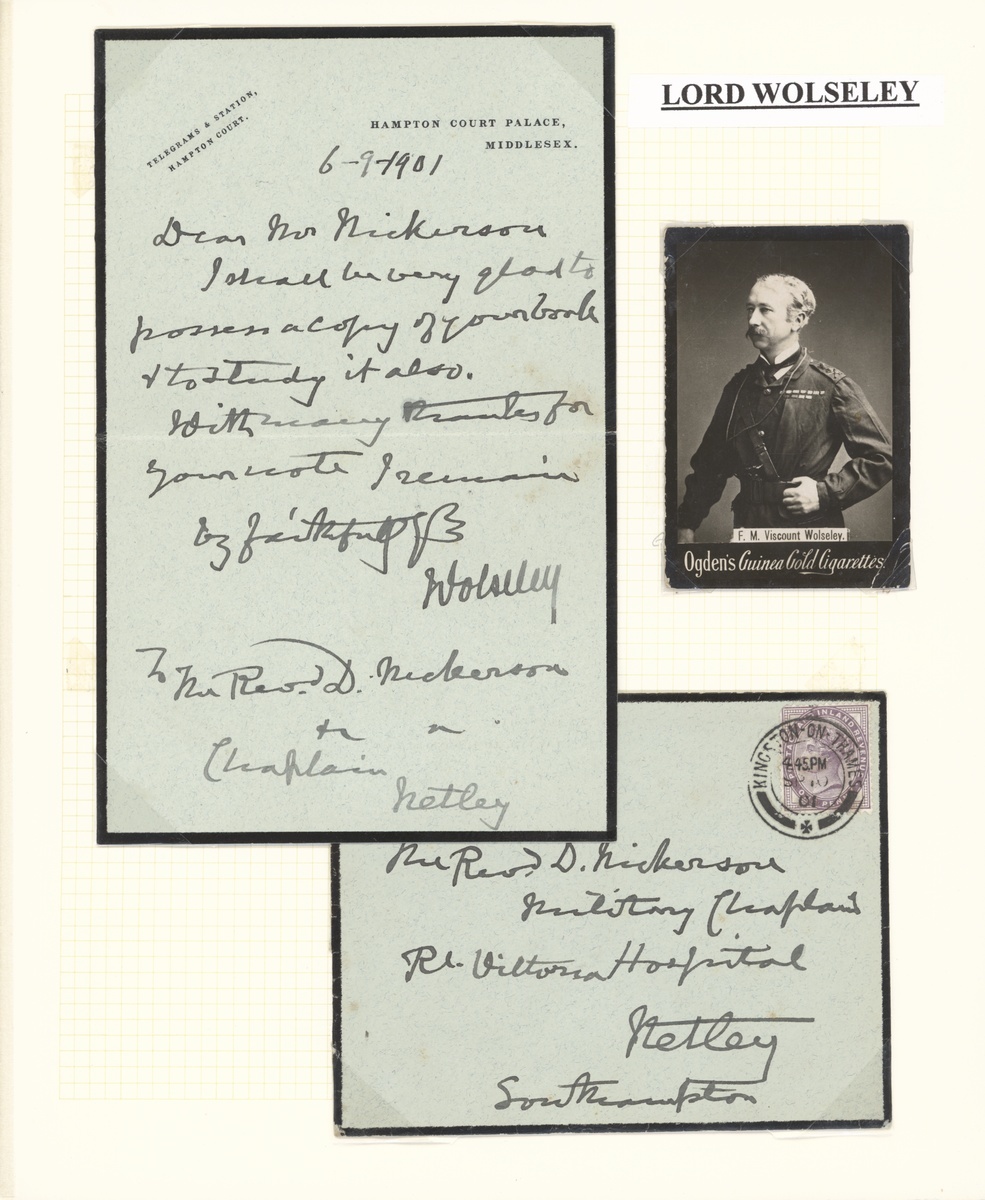 LORD WOLSELEY
TELEGRAMS & STATION,
HAMPTON COURT.
HAMPTON COURT PALACE,
MIDDLESEX.
6-9-1901
Dear Mr Nickerson
I shall be very glad to
possess a copy of your book
& to study it also.
With many thanks for
your note I remain
faithfully
Wolseley
To
The Revd. D. Nickerson
Chaplain
Netley
F. M. Viscount Wolseley.
Ogden's Guinea Gold Cigarettes.
INLAND REVENUE
KINGSTON-ON-THAMES
4.45 PM
01
The Revd D. Nickerson
Military Chaplain
Rl. Victoria Hospital
Netley
Southampton